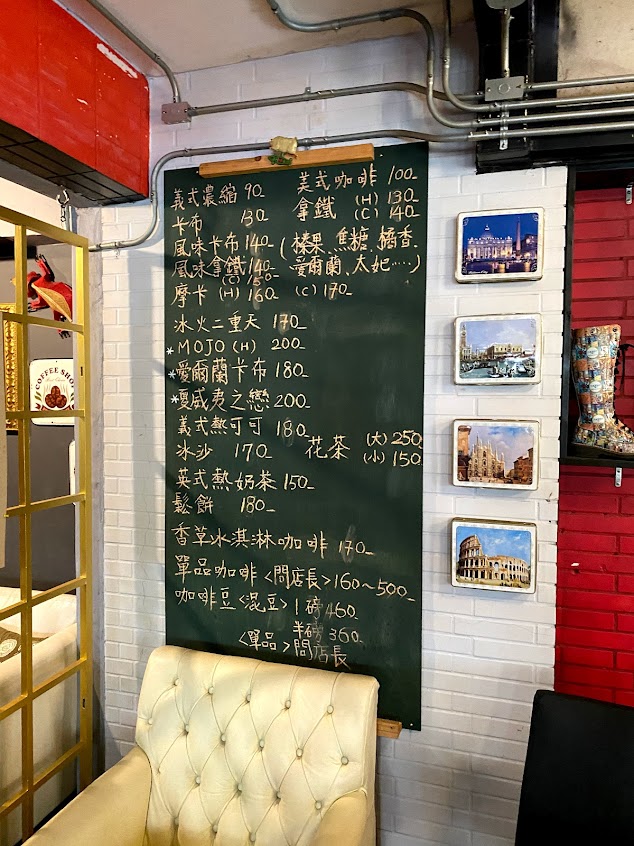 義式濃縮 90 美式咖啡 100
卡布 130 拿鐵 (H) 130
(C) 140
風味卡布 140 (榛果、焦糖、橘香、
風味拿鐵 140 愛爾蘭、太妃……)
(C) 150
摩卡 (H) 160 (C) 170
冰火二重天 170
*MOJO (H) 200
*愛爾蘭卡布 180
*夏威夷之戀 200
義式熱可可 180
冰沙 170 花茶 (大) 250
(小) 150
英式熱奶茶 150
鬆餅 180
香草冰淇淋咖啡 170
單品咖啡<問店長>160~500
咖啡豆<混豆>1磅460
半磅360
<單品>問店長
COFFEE SHOP